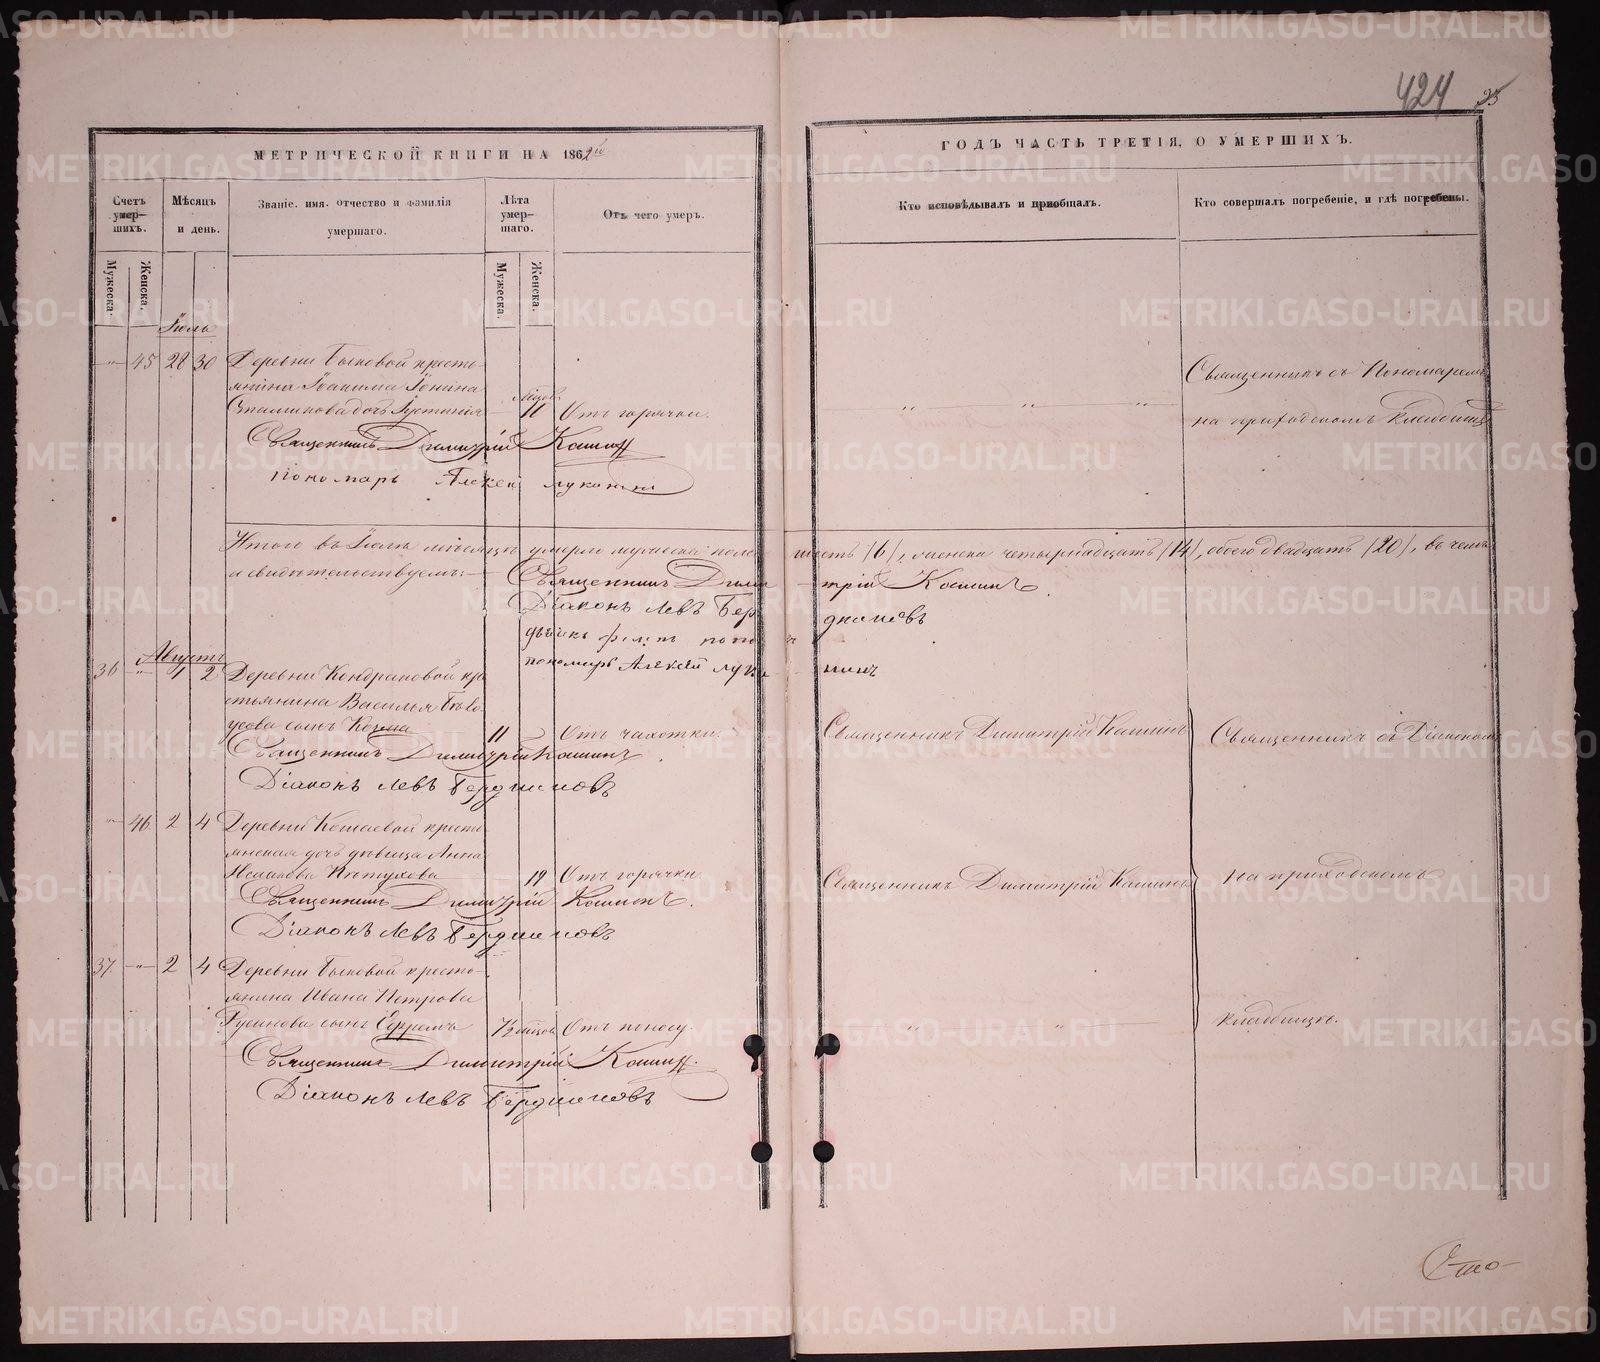 424
35
МЕТРИЧЕСКОЙ КНИГИ НА 1862й
ГОДЪ ЧАСТЬ ТРЕТІЯ, О УМЕРШИХЪ.
Счетъ умер—шихъ.
Мѣсяцъ и день.
Званіе, имя, отчество и фамилія умершаго.
Лѣта умер—шаго.
Отъ чего умеръ.
Кто исповѣдывалъ и пріобщалъ.
Кто совершалъ погребеніе, и гдѣ погребены.
Мужеска.
Женска.
Мужеска.
Женска.
Іюль
45 28 30 Деревни Быковой кресть-
янина Іоакима Іонина
дочь Іустинія 10 Отъ горячки.
Священникъ съ Пономаремъ
на приходскомъ кладбищѣ
Священникъ Димитрій Кашин
Пономарь Алексей Луканин
Итого въ Іюлѣ мѣсяцѣ умерло мужеска пола шесть /6/, женска четырнадцать /14/, обоего двадцать /20/, въ чемъ
и свидѣтельствуемъ:
Священникъ Димитрій Кашинъ.
Діаконъ Левъ Бердниковъ
пономарь Алексей Луканинъ
Августъ
36 1 2 Деревни Кондраповой кре
стьянина Василья Бѣло
усова сынъ Козма 11 Отъ чахотки.
Священникъ Димитрій Кашинъ
Священникъ съ Діакономъ
Священникъ Димитрій Кашинъ.
Діаконъ Левъ Бердниковъ
46 2 4 Деревни Кошаевой кресть
янская дочь дѣвица Анна
Исакова Пѣтухова 19 Отъ горячки
Священникъ Димитрій Кашинъ
на приходскомъ
Священникъ Димитрій Кашинъ.
Діаконъ Левъ Бердниковъ
37. 2 4 Деревни Быковой кресть-
янина Ивана Петрова
Русинова сынъ Ефремъ Отъ поносу.
кладбищѣ.
Священникъ Димитрій Кашин.
Діаконъ Левъ Бердниковъ
METRIKI.GASO-URAL.RU